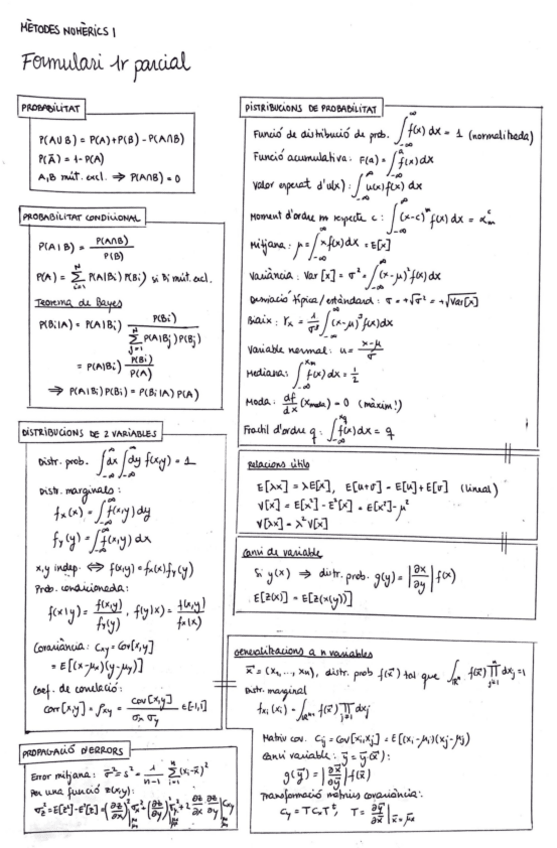 MÈTODES NUMÈRICS 1
Formulari 1r parcial
PROBABILITAT
P(A∪B) = P(A)+P(B) - P(A∩B)
P(Ā) = 1-P(A)
A,B mút. excl. ⇒ P(A∩B) = 0
PROBABILITAT CONDICIONAL
P(A|B) = P(A∩B) / P(B)
P(A) = ∑_{i=1}^{N} P(A|Bi) P(Bi) si Bi mút. excl.
Teorema de Bayes
P(Bi|A) = P(A|Bi) P(Bi) / ∑_{j=1}^{N} P(A|Bj) P(Bj)
= P(A|Bi) P(Bi) / P(A)
⇒ P(A|Bi) P(Bi) = P(Bi|A) P(A)
DISTRIBUCIONS DE 2 VARIABLES
Distr. prob. ∫_{-∞}^{∞} dx ∫_{-∞}^{∞} dy f(x,y) = 1
Distr. marginals:
fx(x) = ∫_{-∞}^{∞} f(x,y) dy
fy(y) = ∫_{-∞}^{∞} f(x,y) dx
x,y indep. ⇔ f(x,y) = fx(x) fy(y)
Prob. condicionada:
f(x|y) = f(x,y) / fy(y), f(y|x) = f(x,y) / fx(x)
Covariància: Cxy = Cov[x,y]
= E[(x-μx)(y-μy)]
Coef. de correlació:
corr[x,y] = ρxy = cov[x,y] / σx σy ∈ [-1,1]
PROPAGACIÓ D'ERRORS
Error mitjana: σ² = s² = 1/(n-1) ∑_{i=1}^{n} (xi-x̄)²
Per una funció z(x,y):
σz² = E[z²] - E²[z] = (∂z/∂x)² σx² + (∂z/∂y)² σy² + 2 ∂z/∂x ∂z/∂y Cxy
DISTRIBUCIONS DE PROBABILITAT
Funció de distribució de prob. ∫_{-∞}^{∞} f(x) dx = 1 (normalitzada)
Funció acumulativa: F(a) = ∫_{-∞}^{a} f(x) dx
Valor esperat d'u(x): ∫_{-∞}^{∞} u(x) f(x) dx
Moment d'ordre m respecte c: ∫_{-∞}^{∞} (x-c)^m f(x) dx = α_m^c
Mitjana: μ = ∫_{-∞}^{∞} x f(x) dx = E[x]
Variància: Var[x] = σ² = ∫_{-∞}^{∞} (x-μ)² f(x) dx
Desviació típica/estàndard: σ = +√σ² = +√Var[x]
Biaix: γx = 1/σ³ ∫_{-∞}^{∞} (x-μ)³ f(x) dx
Variable normal: u = (x-μ)/σ
Mediana: ∫_{-∞}^{xm} f(x) dx = 1/2
Moda: df/dx (xmoda) = 0 (màxim!)
Fractil d'ordre q: ∫_{-∞}^{xq} f(x) dx = q
Relacions útils
E[λx] = λE[x], E[u+v] = E[u] + E[v] (lineal)
V[x] = E[x²] - E²[x] = E[x²] - μ²
V[λx] = λ² V[x]
Canvi de variable
Si y(x) ⇒ distr. prob. g(y) = |∂x/∂y| f(x)
E[z(x)] = E[z(x(y))]
Generalitzacions a n variables
x⃗ = (x1, ..., xn), distr. prob f(x⃗) tal que ∫_{ℝⁿ} f(x⃗) ∏_{j=1}^{n} dxj = 1
Distr. marginal
fxi(xi) = ∫ f(x⃗) ∏ dxj
Matriu cov. Cij = Cov[xi,xj] = E[(xi-μi)(xj-μj)]
Canvi variable: y⃗ = y⃗(x⃗):
g(y⃗) = |∂x⃗/∂y⃗| f(x⃗)
Transformació matrius covariància:
Cy = T Cx Tᵗ, T = ∂y⃗/∂x⃗ |x⃗=μ⃗x